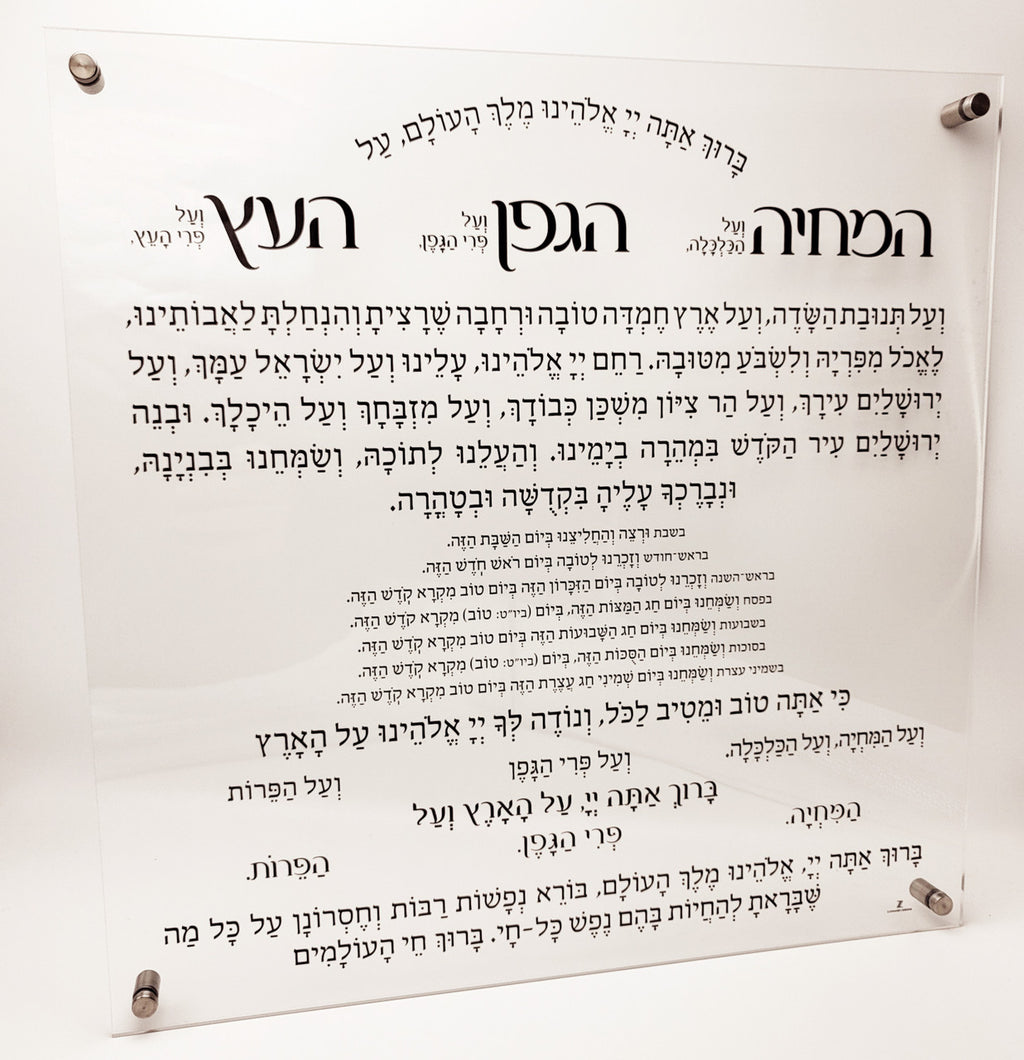 בָּרוּךְ אַתָּה יְיָ אֱלֹהֵינוּ מֶלֶךְ הָעוֹלָם, עַל
המחיה וְעַל הַכַּלְכָּלָה,
הגפן וְעַל פְּרִי הַגָּפֶן,
העץ וְעַל פְּרִי הָעֵץ,
וְעַל תְּנוּבַת הַשָּׂדֶה, וְעַל אֶרֶץ חֶמְדָּה טוֹבָה וּרְחָבָה שֶׁרָצִיתָ וְהִנְחַלְתָּ לַאֲבוֹתֵינוּ,
לֶאֱכֹל מִפִּרְיָהּ וְלִשְׂבֹּעַ מִטּוּבָהּ. רַחֵם יְיָ אֱלֹהֵינוּ, עָלֵינוּ וְעַל יִשְׂרָאֵל עַמָּךְ, וְעַל
יְרוּשָׁלַיִם עִירָךְ, וְעַל הַר צִיּוֹן מִשְׁכַּן כְּבוֹדָךְ, וְעַל מִזְבָּחָךְ וְעַל הֵיכָלָךְ. וּבְנֵה
יְרוּשָׁלַיִם עִיר הַקֹּדֶשׁ בִּמְהֵרָה בְיָמֵינוּ. וְהַעֲלֵנוּ לְתוֹכָהּ, וְשַׂמְּחֵנוּ בְּבִנְיָנָהּ,
וּנְבָרֶכְךָ עָלֶיהָ בִּקְדֻשָּׁה וּבְטָהֳרָה.
בשבת וּרְצֵה וְהַחֲלִיצֵנוּ בְּיוֹם הַשַּׁבָּת הַזֶּה.
בראש-חודש וְזָכְרֵנוּ לְטוֹבָה בְּיוֹם רֹאשׁ חֹדֶשׁ הַזֶּה.
בראש-השנה וְזָכְרֵנוּ לְטוֹבָה בְּיוֹם הַזִּכָּרוֹן הַזֶּה בְּיוֹם טוֹב מִקְרָא קֹדֶשׁ הַזֶּה.
בפסח וְשַׂמְּחֵנוּ בְּיוֹם חַג הַמַּצּוֹת הַזֶּה, בְּיוֹם (ביו״ט: טוֹב) מִקְרָא קֹדֶשׁ הַזֶּה.
בשבועות וְשַׂמְּחֵנוּ בְּיוֹם חַג הַשָּׁבוּעוֹת הַזֶּה בְּיוֹם טוֹב מִקְרָא קֹדֶשׁ הַזֶּה.
בסוכות וְשַׂמְּחֵנוּ בְּיוֹם הַסֻּכּוֹת הַזֶּה, בְּיוֹם (ביו״ט: טוֹב) מִקְרָא קֹדֶשׁ הַזֶּה.
בשמיני עצרת וְשַׂמְּחֵנוּ בְּיוֹם שְׁמִינִי חַג עֲצֶרֶת הַזֶּה בְּיוֹם טוֹב מִקְרָא קֹדֶשׁ הַזֶּה.
כִּי אַתָּה טוֹב וּמֵטִיב לַכֹּל, וְנוֹדֶה לְּךָ יְיָ אֱלֹהֵינוּ עַל הָאָרֶץ
וְעַל הַמִּחְיָה, וְעַל הַכַּלְכָּלָה.
וְעַל פְּרִי הַגָּפֶן
וְעַל הַפֵּרוֹת
בָּרוּךְ אַתָּה יְיָ, עַל הָאָרֶץ וְעַל
הַמִּחְיָה.
פְּרִי הַגָּפֶן.
הַפֵּרוֹת.
בָּרוּךְ אַתָּה יְיָ, אֱלֹהֵינוּ מֶלֶךְ הָעוֹלָם, בּוֹרֵא נְפָשׁוֹת רַבּוֹת וְחֶסְרוֹנָן עַל כָּל מַה
שֶּׁבָּרָאתָ לְהַחֲיוֹת בָּהֶם נֶפֶשׁ כָּל-חָי. בָּרוּךְ חֵי הָעוֹלָמִים